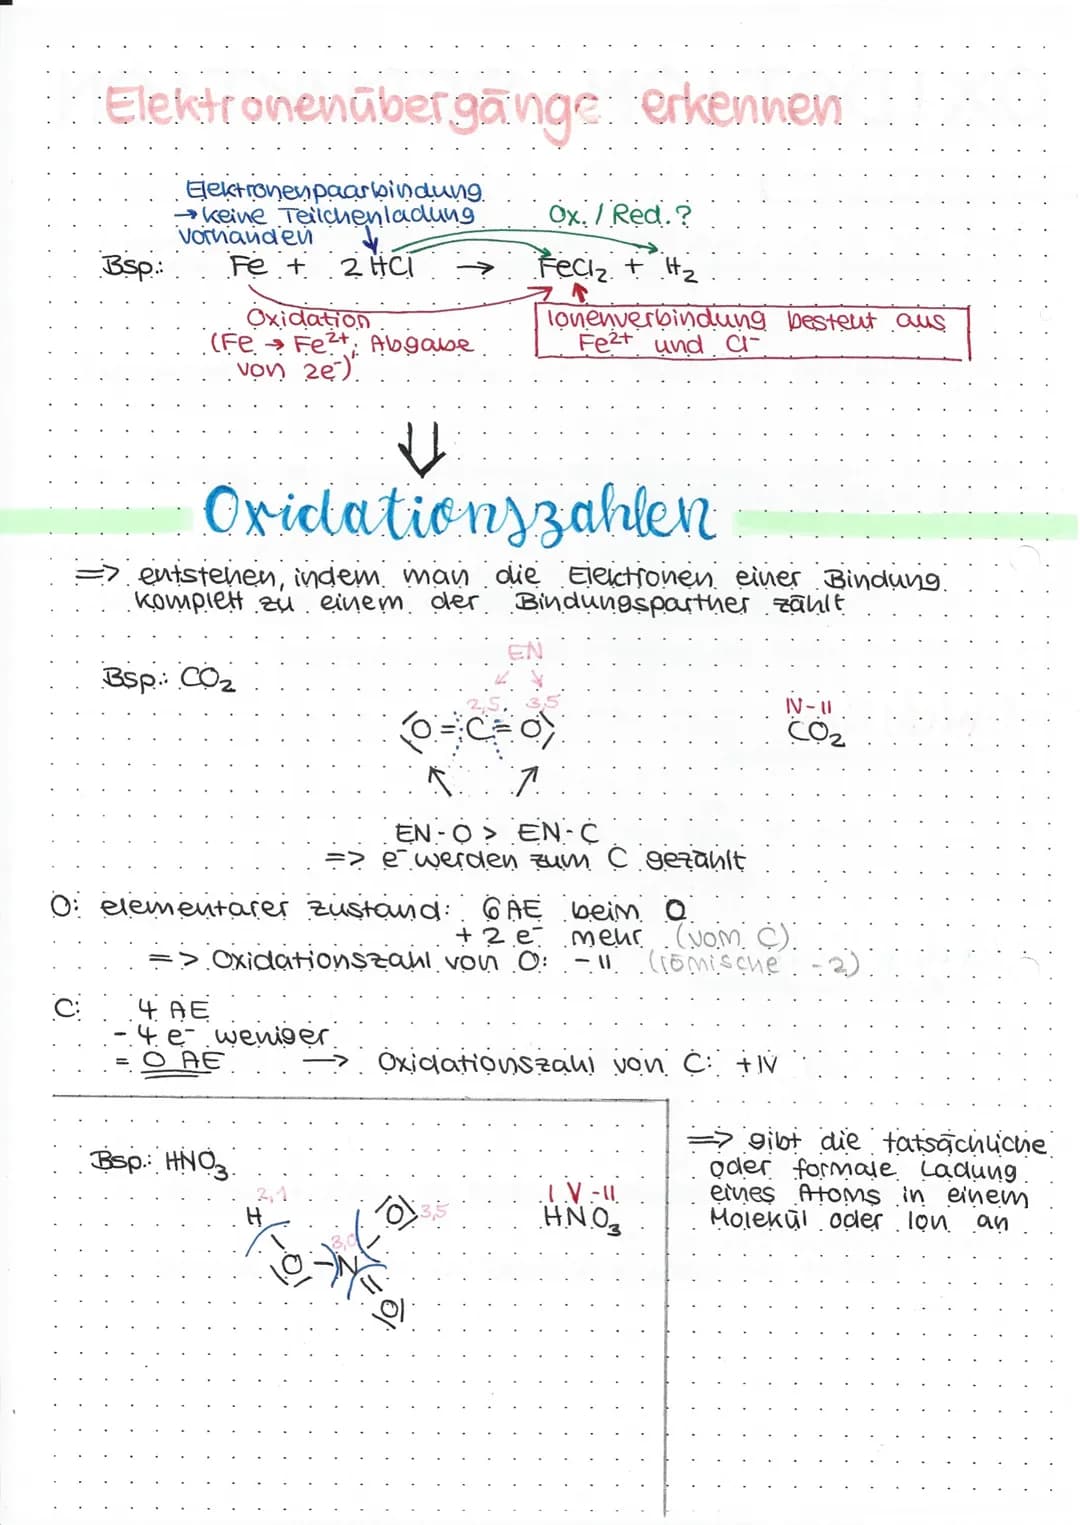 Elektronenübergänge erkennen
Elektronenpaarbindung
→ keine Teilchenladung
vorhanden
Ox. / Red.?
Bsp.: Fe + 2 HCl → FeCl₂ + H₂
Oxidation
(Fe → Fe²⁺; Abgabe
von 2e⁻)
Ionenverbindung besteht aus
Fe²⁺ und Cl⁻
⇓
Oxidationszahlen
=> entstehen, indem man die Elektronen einer Bindung
komplett zu einem der Bindungspartner zählt
EN
Bsp.: CO₂
2,5 3,5
O = C = O
IV -II
CO₂
EN-O > EN-C
=> e⁻ werden zum C gezählt
O: elementarer Zustand: 6 AE beim O
+ 2 e⁻ mehr (vom C)
=> Oxidationszahl von O: -II (römische -2)
C: 4 AE
- 4 e⁻ weniger
= 0 AE → Oxidationszahl von C: +IV
Bsp.: HNO₃
2,1
H
O 3,5
3,0
O - N
O
I V -II
HNO₃
=> gibt die tatsächliche
oder formale Ladung
eines Atoms in einem
Molekül oder Ion an